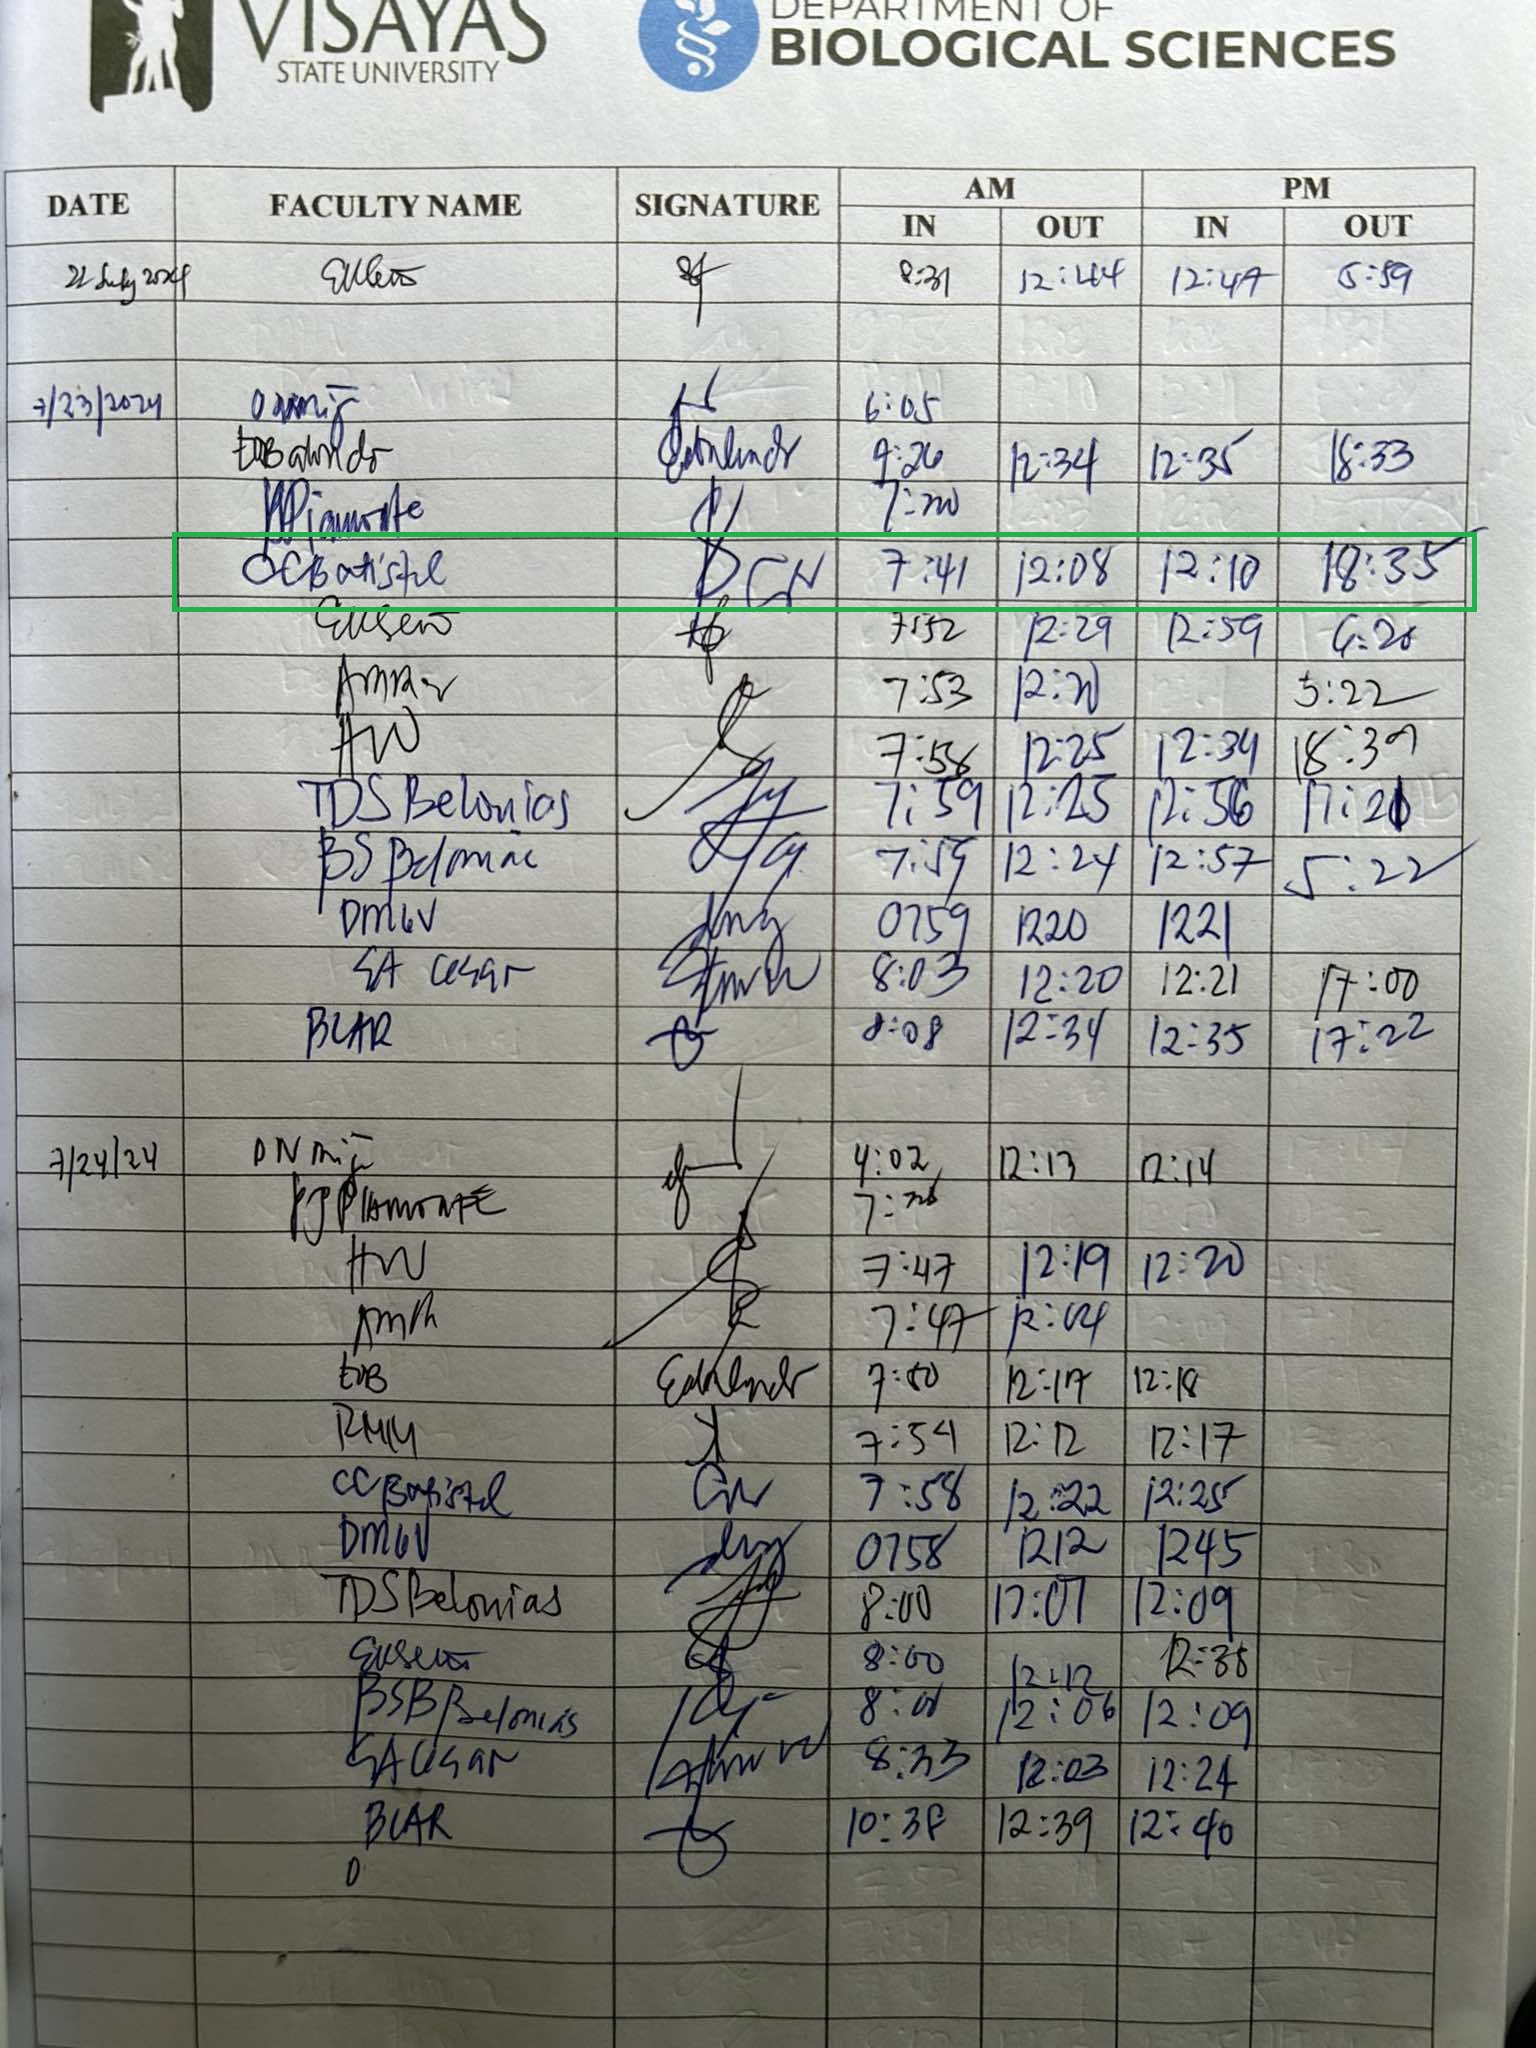 VISAYAS
STATE UNIVERSITY
DEPARTMENT OF
BIOLOGICAL SCIENCES
DATE FACULTY NAME SIGNATURE AM PM
IN OUT IN OUT
22 July 2024 8:31 12:44 12:47 5:59
7/23/2024 6:05
9:26 12:34 12:35 18:33
PJPiamonte
CCBatistel 7:41 12:08 12:10 18:35
7:52 12:29 12:59
7:53 12:20 5:22
HW 7:58 12:25 12:34 18:39
TDSBelonias 7:59 12:25 12:56
BSBelonias 7:59 12:24 12:57 5:22
DMGV 0759 1220 1221
SA Cesar 8:03 12:20 12:21 17:00
BLAR 8:08 12:34 12:35 17:22
7/24/24 4:02 12:13 12:14
PJPIAMONTE
HW 7:47 12:19 12:20
AMR 7:47 12:04
EDB 7:50 12:17 12:18
RMM 7:54 12:12 12:17
CCBatistel 7:58 12:22 12:25
DMGV 0758 1212 1245
TDSBelonias 8:00 12:07 12:09
8:00 12:12
BSBBelonias 12:06 12:09
SACesar 8:33 12:03 12:24
BLAR 10:38 12:39 12:40